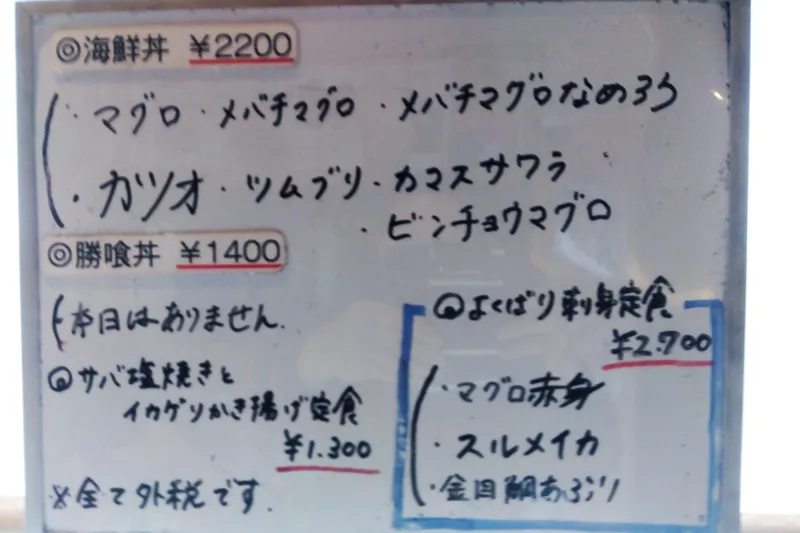 ◎海鮮丼 ¥2200
・マグロ・メバチマグロ・メバチマグロなめろう
・カツオ・ツムブリ・カマスサワラ
・ビンチョウマグロ
◎勝喰丼 ¥1400
本日はありません.
◎サバ塩焼きと
イカゲソかき揚げ定食
¥1.300
※全て外税です.
◎よくばり刺身定食
¥2.700
・マグロ赤身
・スルメイカ
・金目鯛あぶり